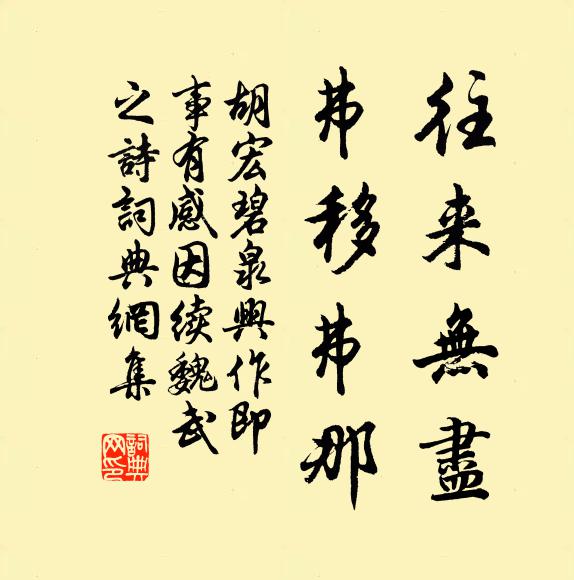 往来無盡
弗移弗那
胡宏碧泉興作即
事有感因续魏武
之詩詞典網集
詞典
网印